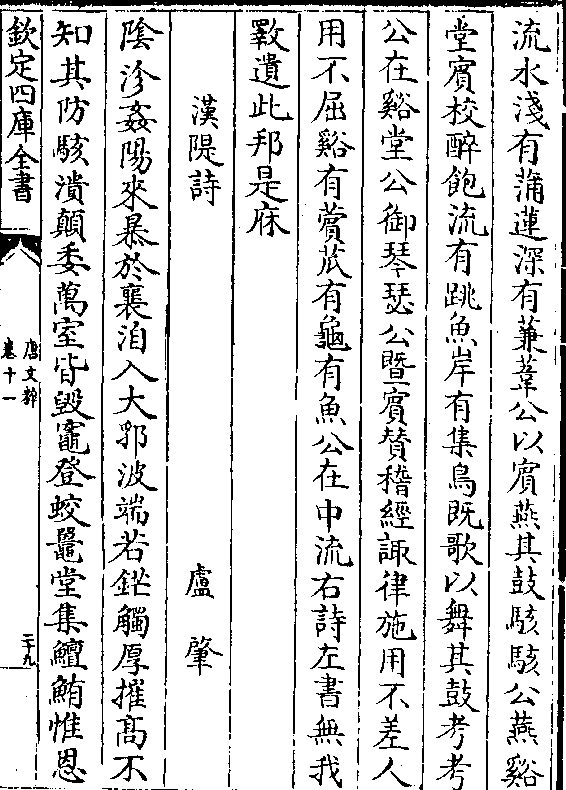 流水淺有蒲蓮深有蒹葦公以賓燕其鼓駭駭公燕谿
堂賓校醉飽流有跳魚岸有集鳥既歌以舞其鼓考考
公在谿堂公御琴瑟公暨賓贊稽經諏律施用不差人
用不屈谿有薲苽有龜有魚公在中流右詩左書無我
斁遺此邦是庥
漢隄詩　盧肇
陰沴姦陽來暴於襄洎入大郛波端若鋩觸厚摧高不
知其防駭潰顛委萬室皆毀竈登蛟鼉堂集鱣鮪惟恩
欽定四庫全書
唐文粹
卷十一
二十九